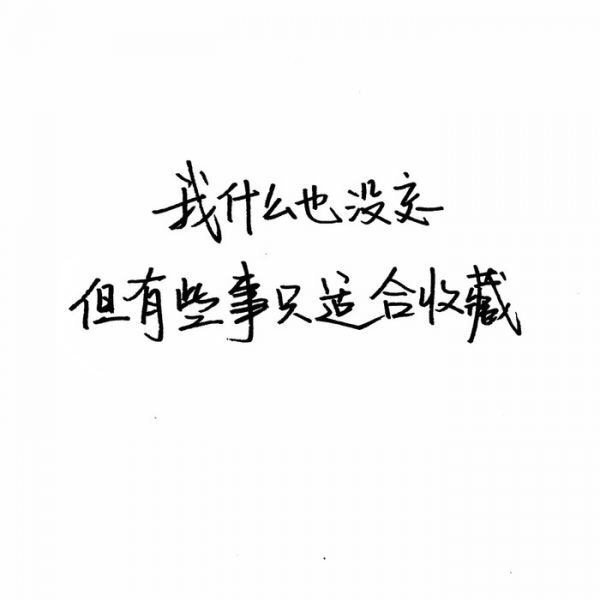 我什么也没交
但有些事只适合收藏